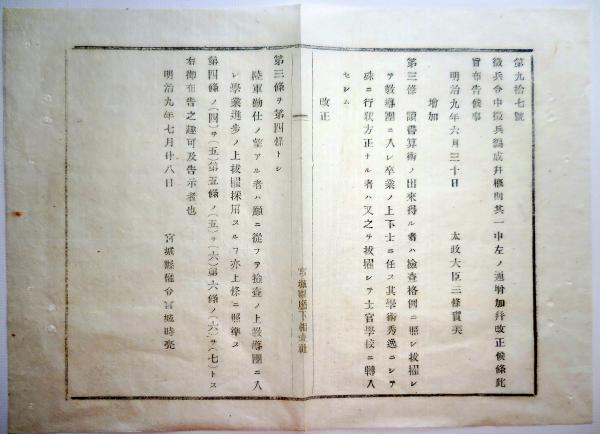 第九拾七號
徵兵令中徵兵編成幷概則其一中左ノ通增加幷改正候條此
旨布告候事
明治九年六月三十日　太政大臣三條實美
增加
第三條　讀書算術ノ出來得ル者ハ檢査格例ニ照シ拔擢シ
ヲ敎導團ニ入レ卒業ノ上下士ニ任ス其學術秀逸ニシテ
殊ニ行狀方正ナル者ハ又之ヲ拔擢シテ士官學校ニ轉入
セシム
改正
第三條ヲ第四條トシ
陸軍勤仕ノ望アル者ハ願ニ從フテ檢査ノ上敎導團ニ入
レ學業進步ノ上拔擢採用スルヿ亦上條ニ照準ス
第四條ノ(四)ヲ(五)第五條ノ(五)ヲ(六)第六條ノ(六)ヲ(七)トス
右御布告之趣可及告示者也
明治九年七月廿八日　宮城縣權令宮城時亮
宮城縣廳下